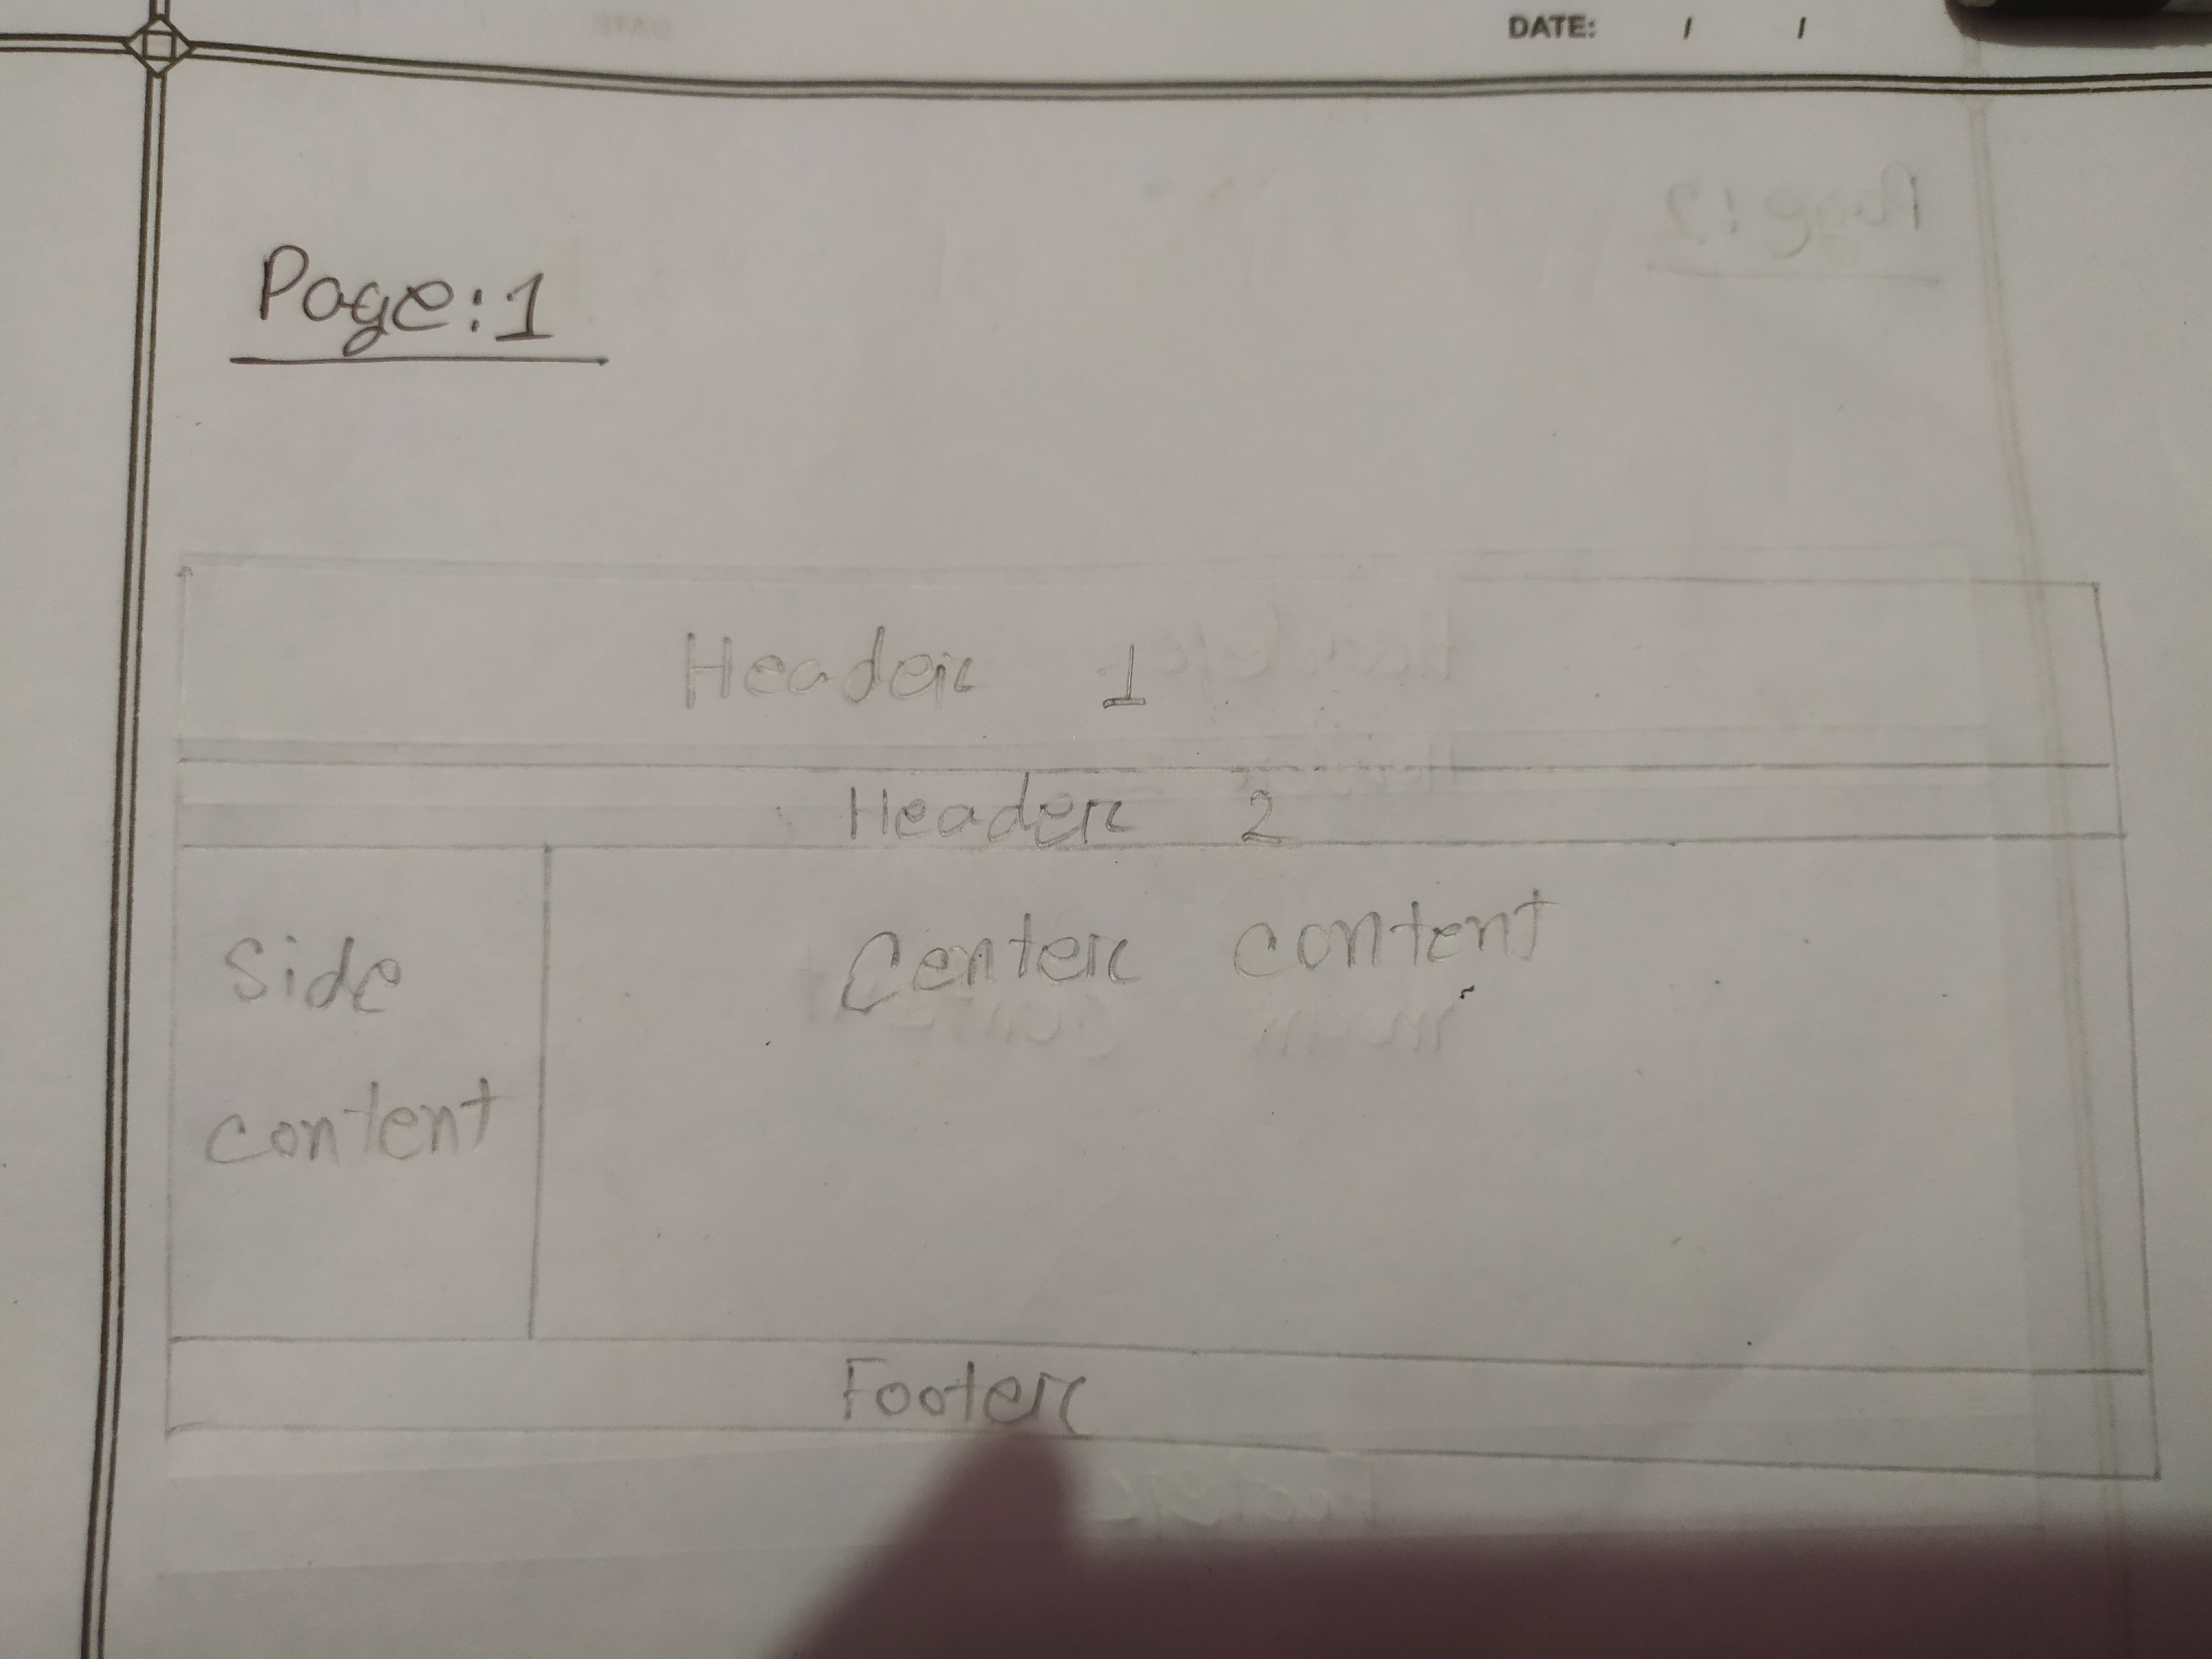 DATE: / /
Page:1
Header 1
Header 2
Side
content
Center content
Footer